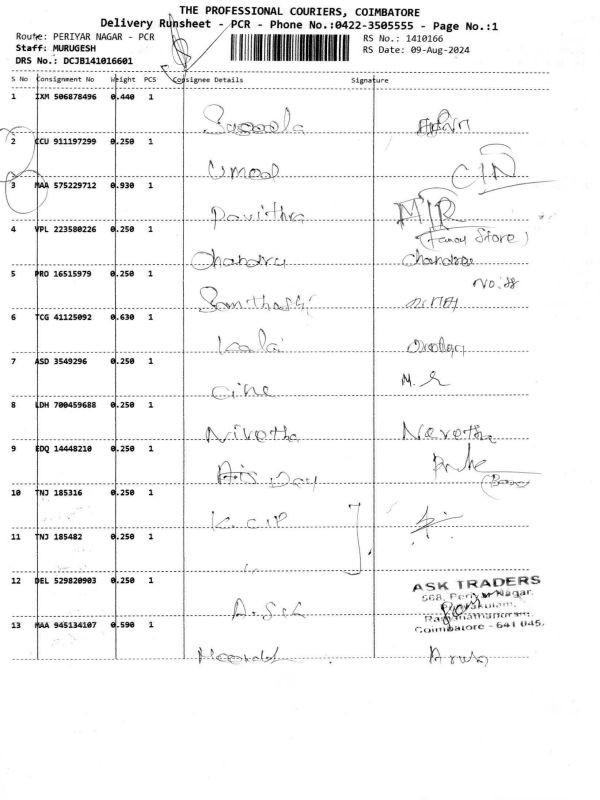 THE PROFESSIONAL COURIERS, COIMBATORE
Delivery Runsheet - PCR - Phone No.:0422-3505555 - Page No.:1
Route: PERIYAR NAGAR - PCR
RS No.: 1410166
Staff: MURUGESH
RS Date: 09-Aug-2024
DRS No.: DCJB141016601
S No Consignment No Weight PCS Consignee Details Signature
1 IXM 506878496 0.440 1
2 CCU 911197299 0.250 1
CIN
3 MAA 575229712 0.930 1
Pavithra MIR
4 VPL 223580226 0.250 1
(Fancy Store)
Chandru Chandru
5 PRO 16515979 0.250 1
6 TCG 41125092 0.630 1
Kalai
7 ASD 3549296 0.250 1
M.
8 LDH 700459688 0.250 1
Nivetha Nevetha
9 EDQ 14448210 0.250 1
10 TNJ 185316 0.250 1
11 TNJ 185482 0.250 1
12 DEL 529820903 0.250 1
ASK TRADERS
568, Periyar Nagar,
Coimbatore - 641 045.
13 MAA 945134107 0.590 1